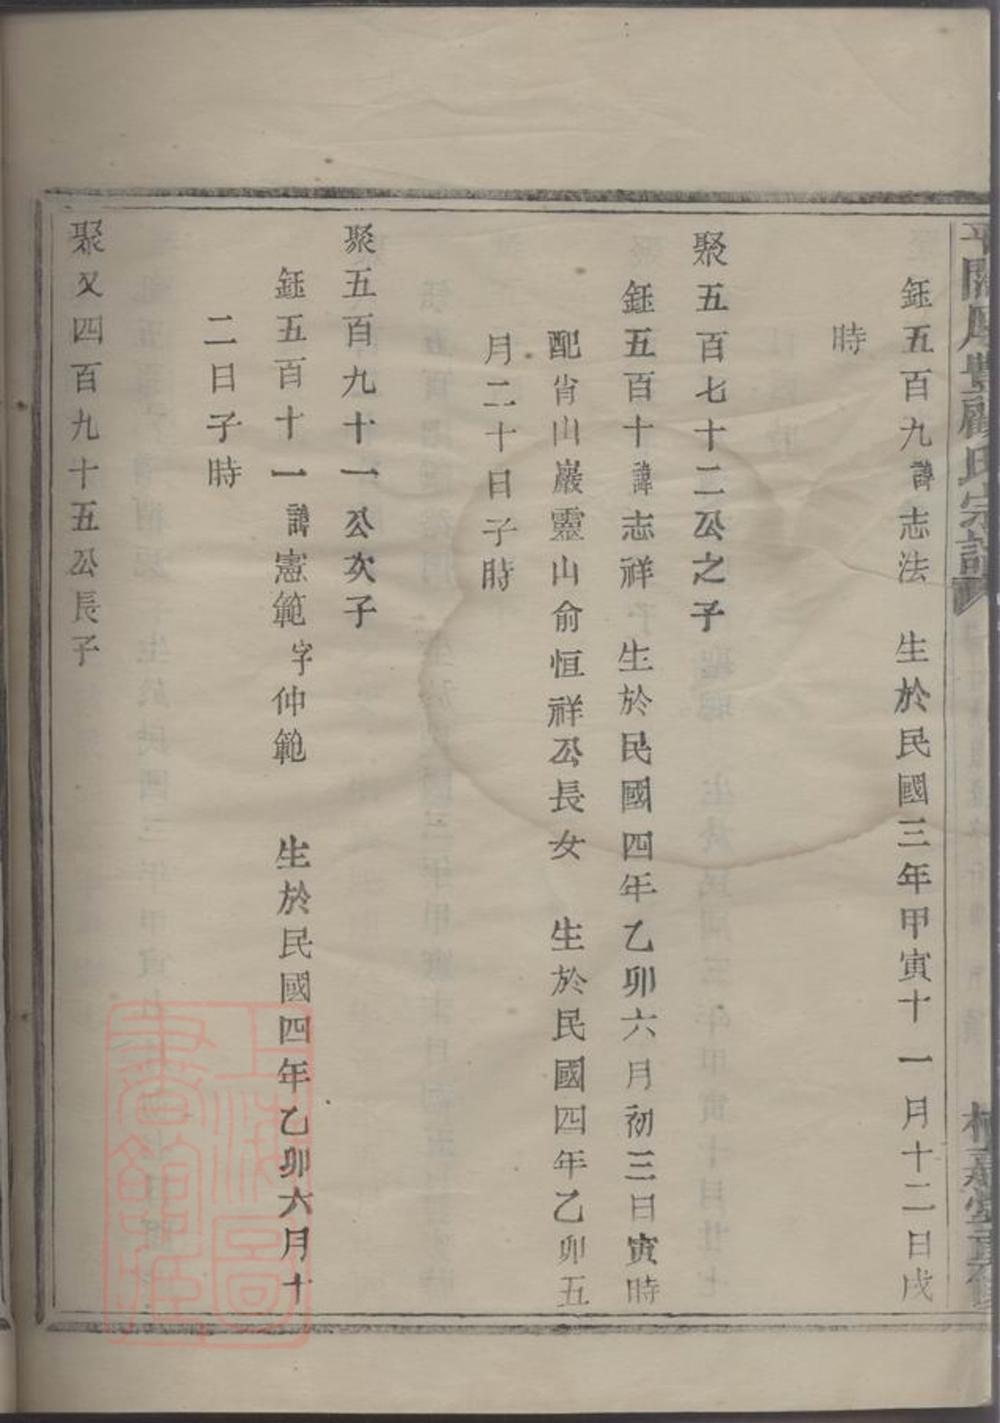 鈺五百九諱志法　生於民國三年甲寅十一月十二日戌
時
聚五百七十二公之子
鈺五百十諱志祥　生於民國四年乙卯六月初三日寅時
配省山巖靈山俞恒祥公長女　生於民國四年乙卯五
月二十日子時
聚五百九十一公次子
鈺五百十一諱憲範字仲範　生於民國四年乙卯六月十
二日子時
聚又四百九十五公長子
上海圖
書館藏